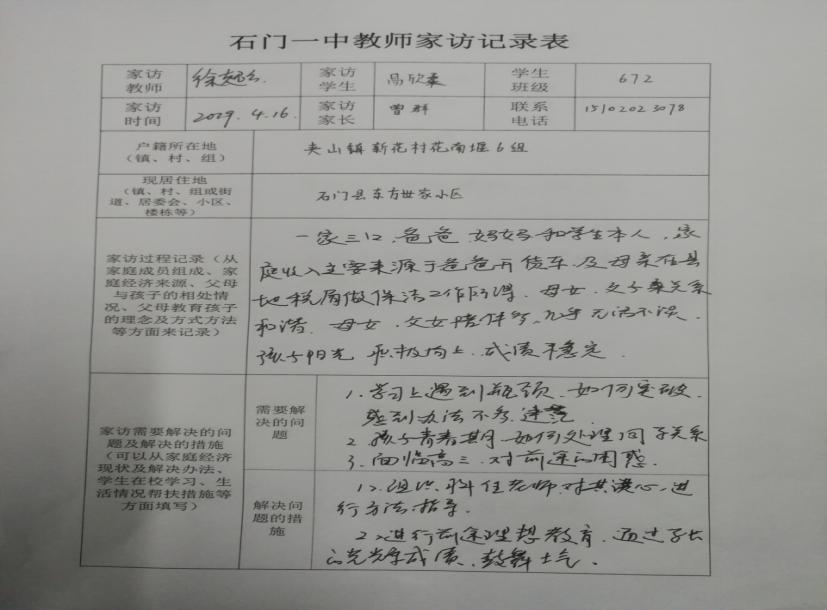 石门一中教师家访记录表
家访教师 徐 家访学生 高欣 学生班级 672
家访时间 2019.4.16. 家访家长 曾群 联系电话 15102023078
户籍所在地（镇、村、组） 夹山镇新花村花南堰6组
现居住地（镇、村、组或街道、居委会、小区、楼栋等） 石门县东方世家小区
家访过程记录（从家庭成员组成、家庭经济来源、父母与孩子的相处情况、父母教育孩子的理念及方式方法等方面来记录）
一家三口，爸爸、妈妈和学生本人，家
庭收入主要来源于爸爸开货车及母亲在县
地税局做保洁工作所得。母女、父子关系
和谐。母女、父女陪伴多，几乎无话不谈。
孩子阳光、积极向上，成绩不稳定。
家访需要解决的问题及解决的措施（可以从家庭经济现状及解决办法、学生在校学习、生活情况帮扶措施等方面填写）
需要解决的问题
1、学习上遇到瓶颈，如何突破，
感到办法不多，迷茫
2、孩子青春期，如何处理同子关系
3、面临高三，对前途的困惑。
解决问题的措施
1、组织科任老师，对其谈心，进
行方法指导。
2、进行前途理想教育，通过
的光荣成绩，鼓舞士气。